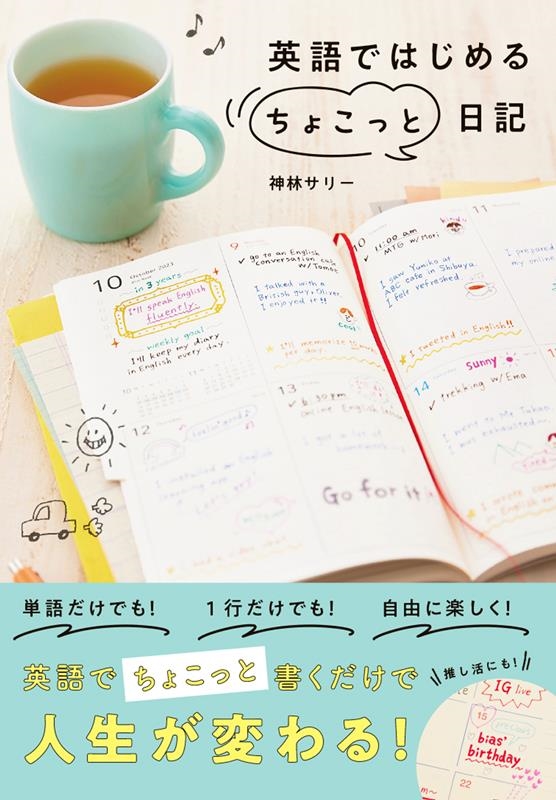 英語ではじめる
ちょこっと
日記
神林サリー
10 October 2023
in 3 years
I'll speak English
fluently.
weekly goal
I'll keep my diary
in English every day.
9
go to an English
conversation cafe
w/Tomoe
I talked with a
British guy, Oliver.
I enjoyed it!!
I'll memorize
per day.
10
11:00 am
MTG w/Mori
I saw Yumiko at
ABC cafe in Shibuya.
I felt refreshed.
I tweeted in English!!
11
I prepared
my online
12
I installed an English
learning app.
Let's try!
13
6:30 pm
online English
I got a lot of
homework
Go for it
14
sunny
trekking w/Ema
I went to Mt. Takao
I was exhausted
tired
I wrote
単語だけでも!
1行だけでも!
自由に楽しく!
英語で ちょこっと 書くだけで
人生が変わる!
推し活にも!
IG live
15
precious
bias'
birthday
22